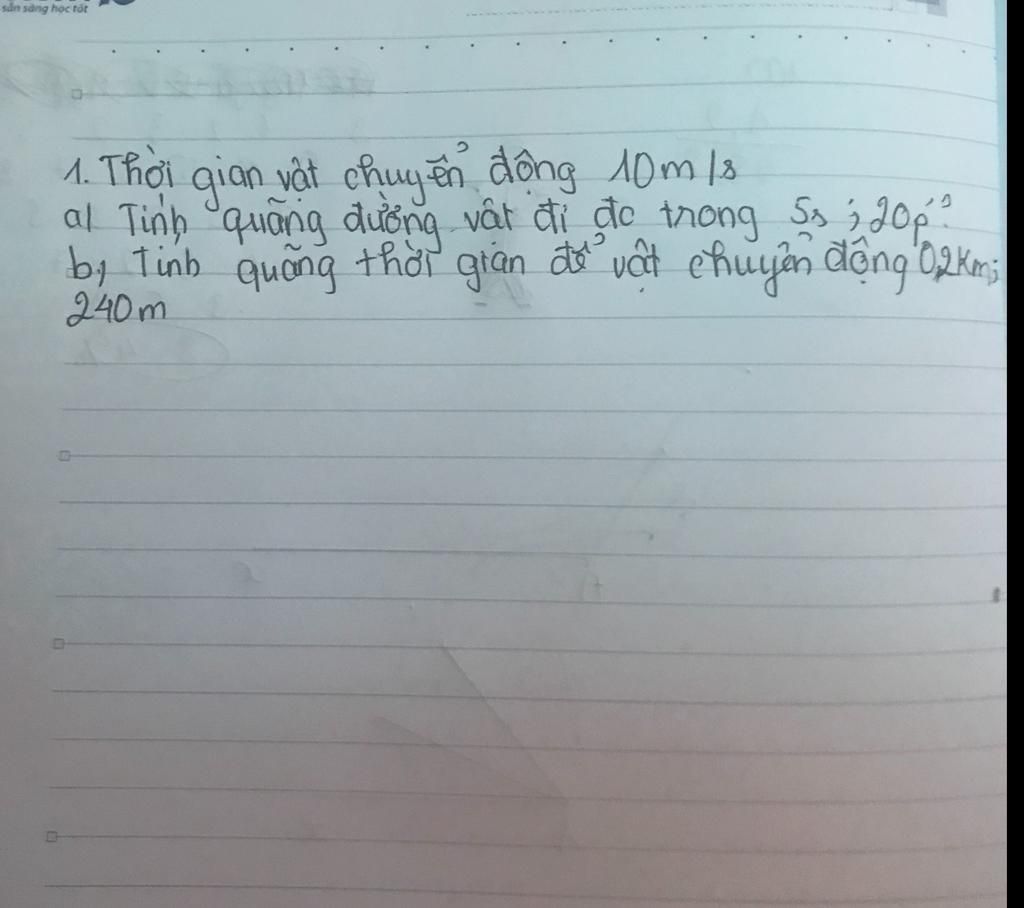 sẵn sàng học tốt
1. Thời gian vật chuyển động 10m/s
a) Tính quãng đường vật đi đc trong 5s ; 20p?
b, Tính quãng thời gian để vật chuyển động 0,2km;
240m